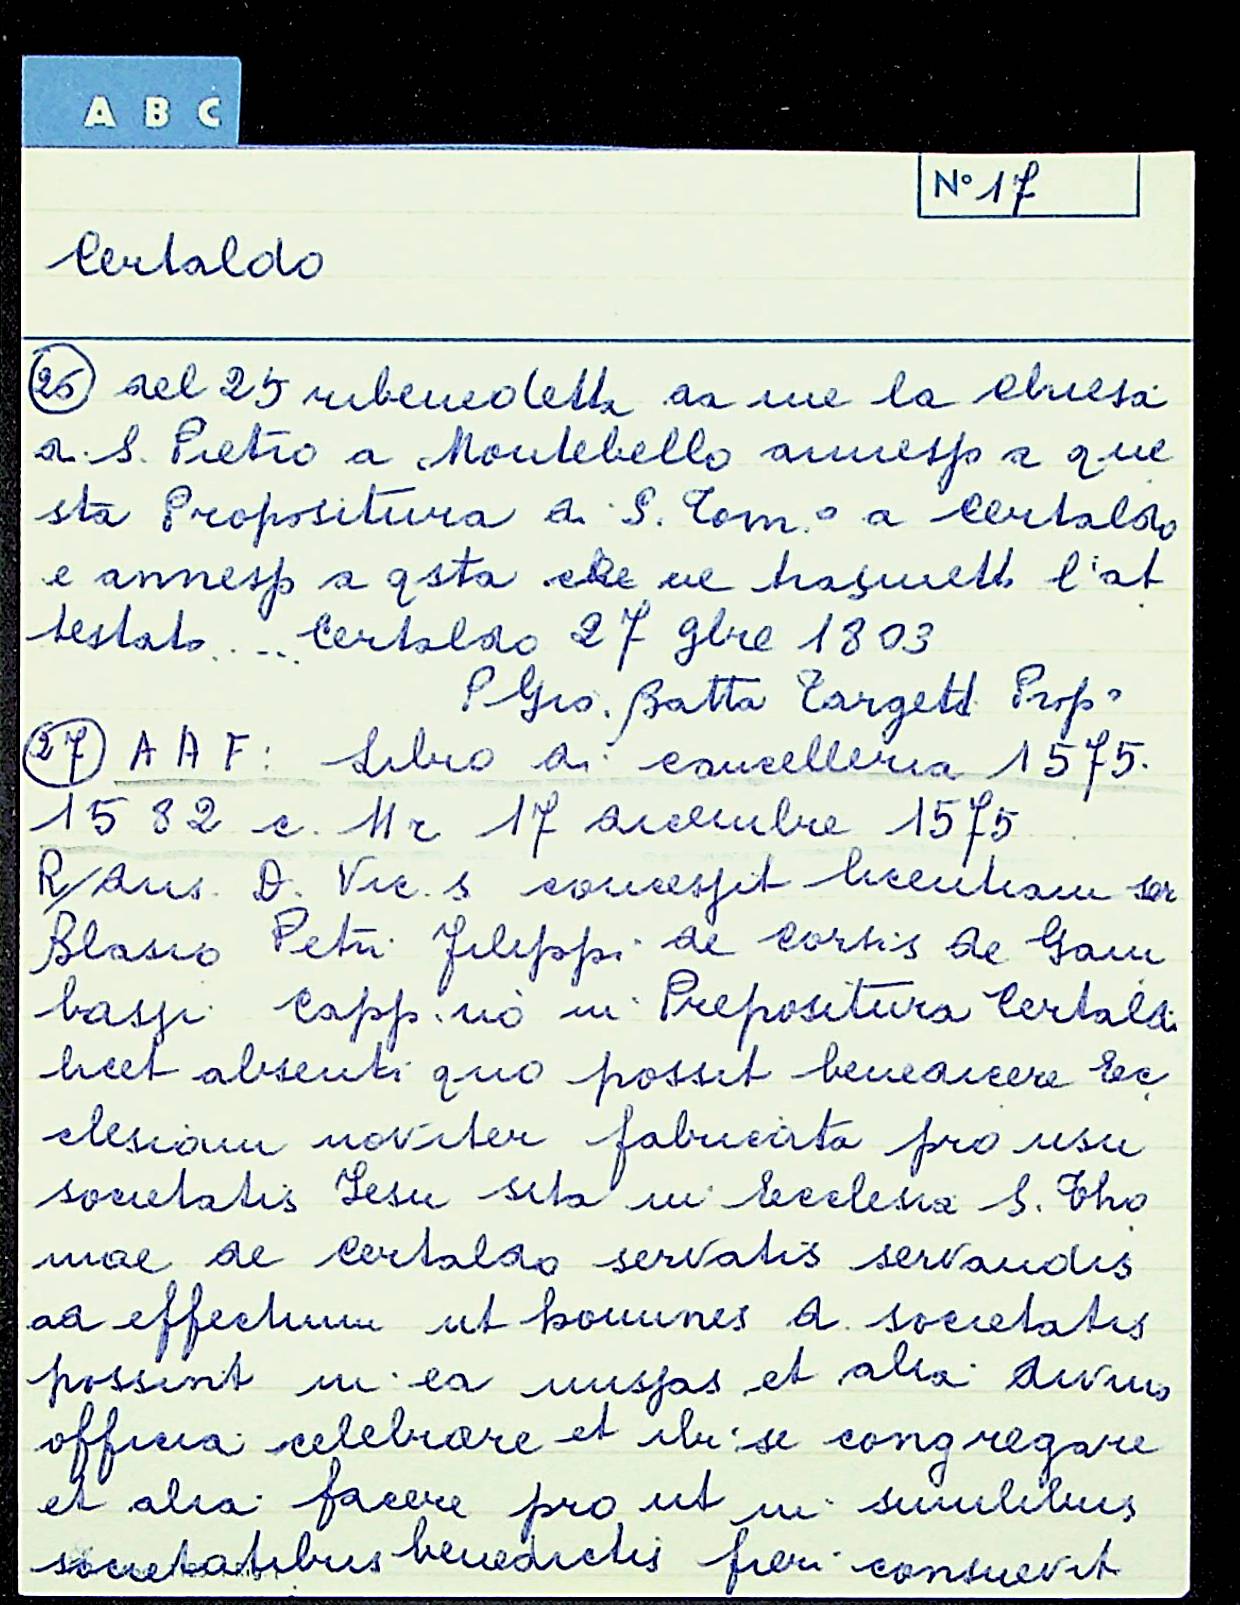 A B C
N° 17
Certaldo
26 del 25 ribenedetta da me la chiesa
di S. Pietro a Montebello annessa a que
sta Propositura di S. Tom.o a Certaldo
e annessa a qsta che ne trasmett l'at
testato .... Certaldo 27 9bre 1803
P Gio. Batta Targetti Prop°
27 A A F: Libro di cancelleria 1575.
1582 c. 11 r 17 dicembre 1575
R/dus. D. Vic. s concessit licentiam ser
Blasio Petri Filippi de Corsis de Gam
bassi Capp.no in Prepositura Certaldi
licet absenti quo possit benedicere Ec
clesiam noviter fabricata pro usu
societatis Jesu sita in Ecclesia S. Tho
mae de Certaldo servatis servandis
ad effectum ut homines d. societatis
possint in ea missas et alia divina
officia celebrare et ibi se congregare
et alia facere pro ut in similibus
societatibus benedictis fieri consuevit